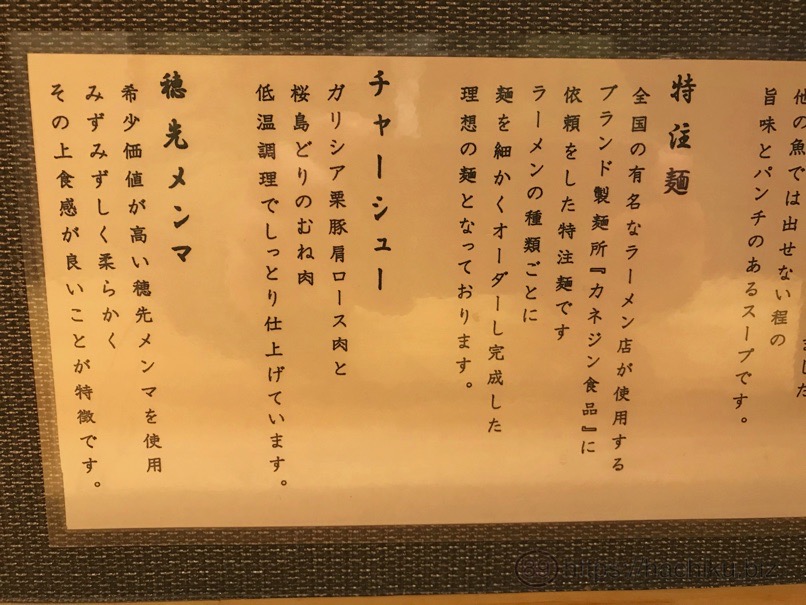 ました
他の魚では出せない程の
旨味とパンチのあるスープです。
特注麺
全国の有名なラーメン店が使用する
ブランド製麺所『カネジン食品』に
依頼をした特注麺です
ラーメンの種類ごとに
麺を細かくオーダーし完成した
理想の麺となっております。
チャーシュー
ガリシア栗豚肩ロース肉と
桜島どりのむね肉
低温調理でしっとり仕上げています。
穂先メンマ
希少価値が高い穂先メンマを使用
みずみずしく柔らかく
その上食感が良いことが特徴です。
https://hachiku.biz